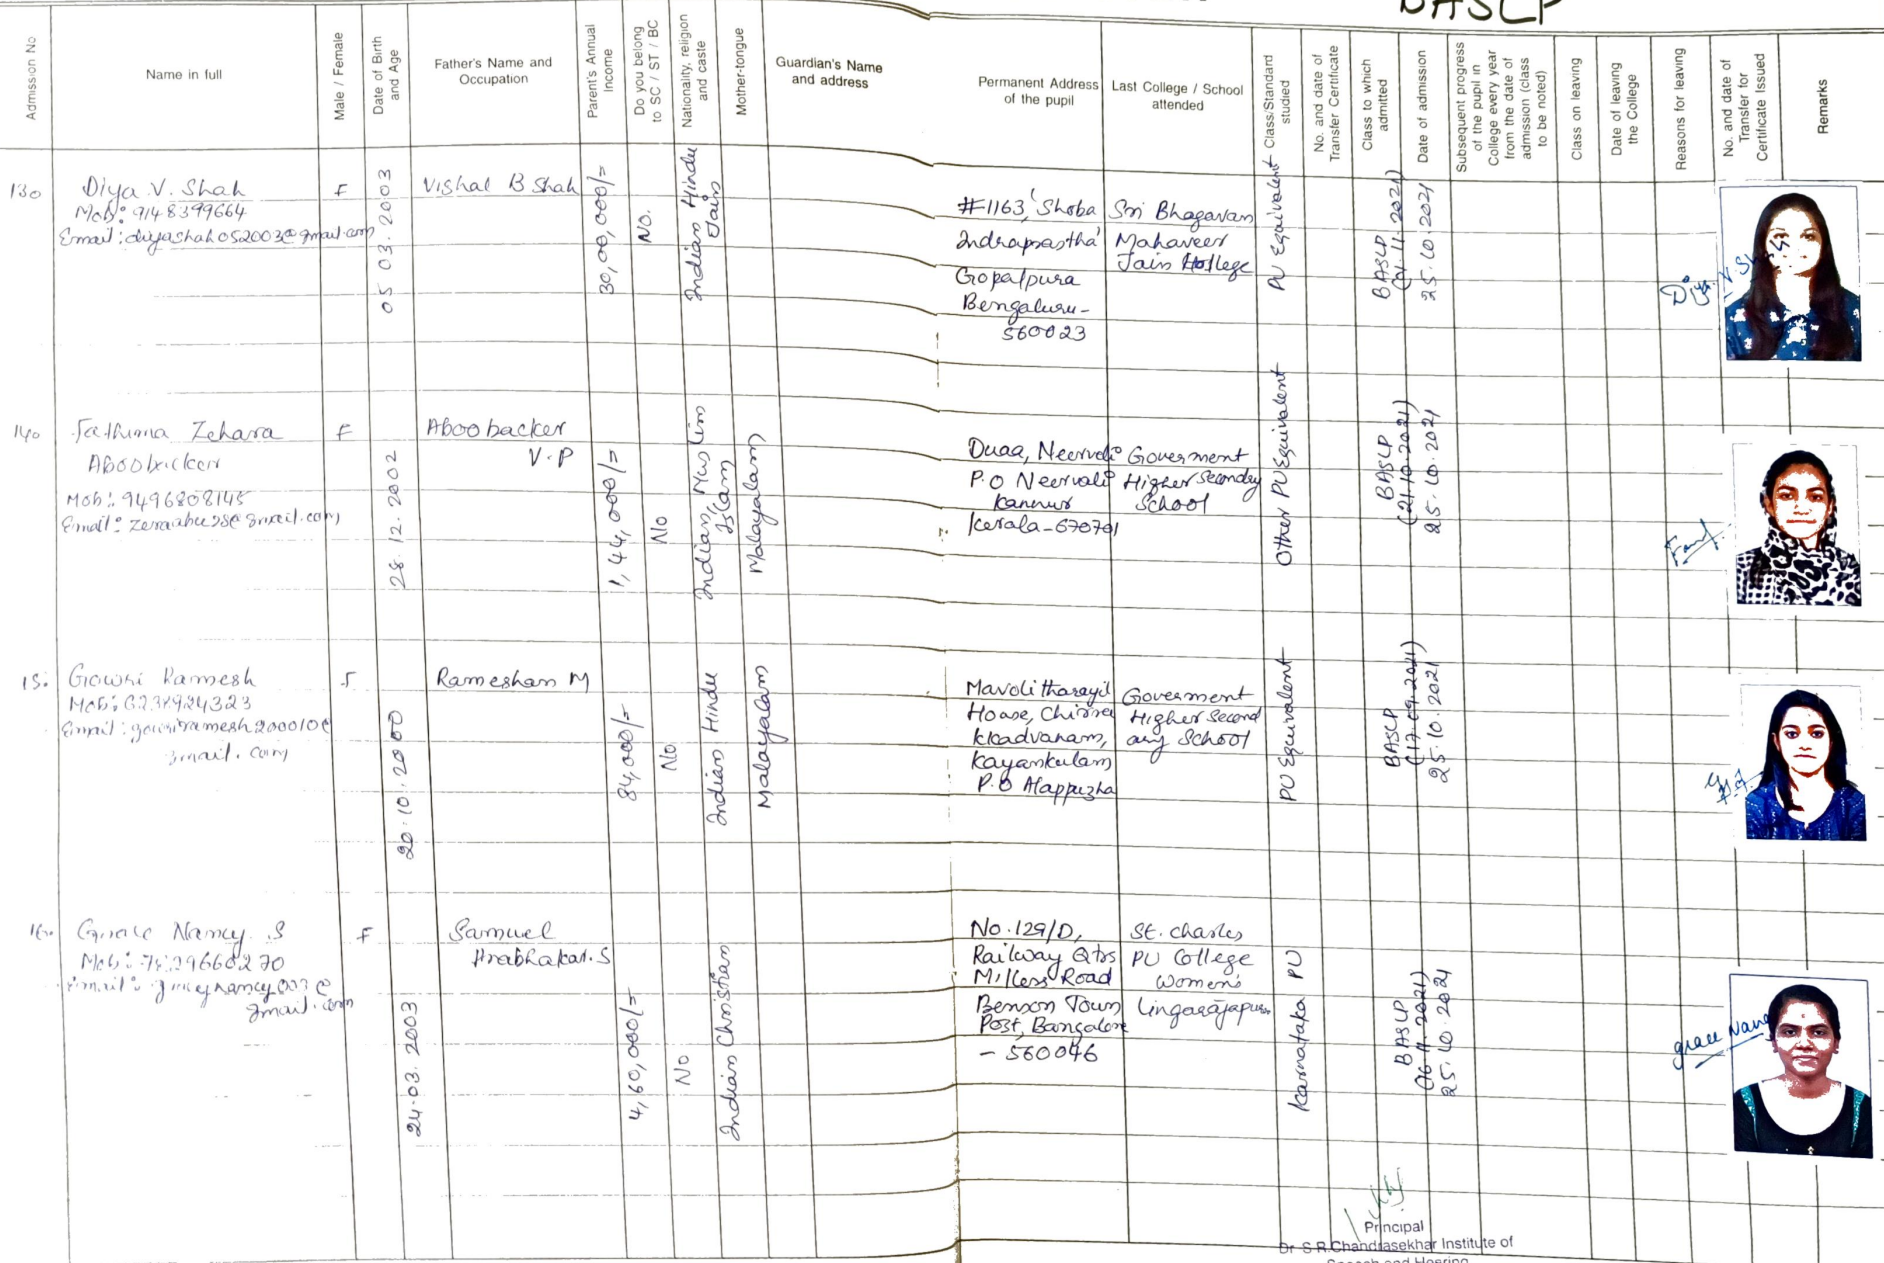 BASLP
Admission No
Name in full
Male / Female
Date of Birth and Age
Father's Name and Occupation
Parent's Annual Income
Do you belong to SC / ST / BC
Nationality, religion and caste
Mother-tongue
Guardian's Name and address
Permanent Address of the pupil
Last College / School attended
Class/Standard studied
No. and date of Transfer Certificate
Class to which admitted
Date of admission
Subsequent progress of the pupil in College every year from the date of admission (class to be noted)
Class on leaving
Date of leaving the College
Reasons for leaving
No. and date of Transfer for Certificate Issued
Remarks
130
Diya V. Shah
Mob: 9148399664
Email: diyashah052003@gmail.com
F
05 03. 2003
Vishal B Shah
30,00,000/=
No.
Indian Hindu
Jain
#1163, Shoba
Indraprastha
Gopalpura
Bengaluru-
560023
Sri Bhagavan
Mahaveer
Jain College
PU Equivalent
BASLP
(01.11.2021)
25.10.2021
Diya. V. Shah
140
Fathima Zehara
Aboobacker
Mob: 9496808145
Email:
F
28. 12. 2002
Aboobacker
V.P
1,44,000/=
No
Indian, Muslim
Islam
Malayalam
Duaa, Neervali
P.O Neervali
Kannur
Kerala-670701
Goverment
Higher Secondry
School
Other PU Equivalent
BASLP
(21.10.2021)
25.10.2021
15.
Gowri Ramesh
Mob:
Email: gowriramesh200010@
gmail.com
F
20.10.2000
Rameshan M
84,000/=
No
Indian Hindu
Malayalam
Mavolitharayil
House,
Kayankulam
P.O Alappuzha
Goverment
Higher Second
ary School
PU Equivalent
BASLP
(17.09.2021)
25.10.2021
16.
Grace Nancy. S
Mob:
Email:
gmail.com
F
24.03. 2003
Samuel
Prabhakar. S
4,60,000/=
No
Indian Christian
No.129/D,
Railway Qtrs
Millers Road
Benson Town
Post, Bangalore
- 560046
St. Charles
PU College
Women's
Lingarajapuram
Karnataka PU
BASLP
(16.11.2021)
25.10.2021
grace Nancy
Principal
Dr S.R.Chandrasekhar Institute of
Speech and Hearing